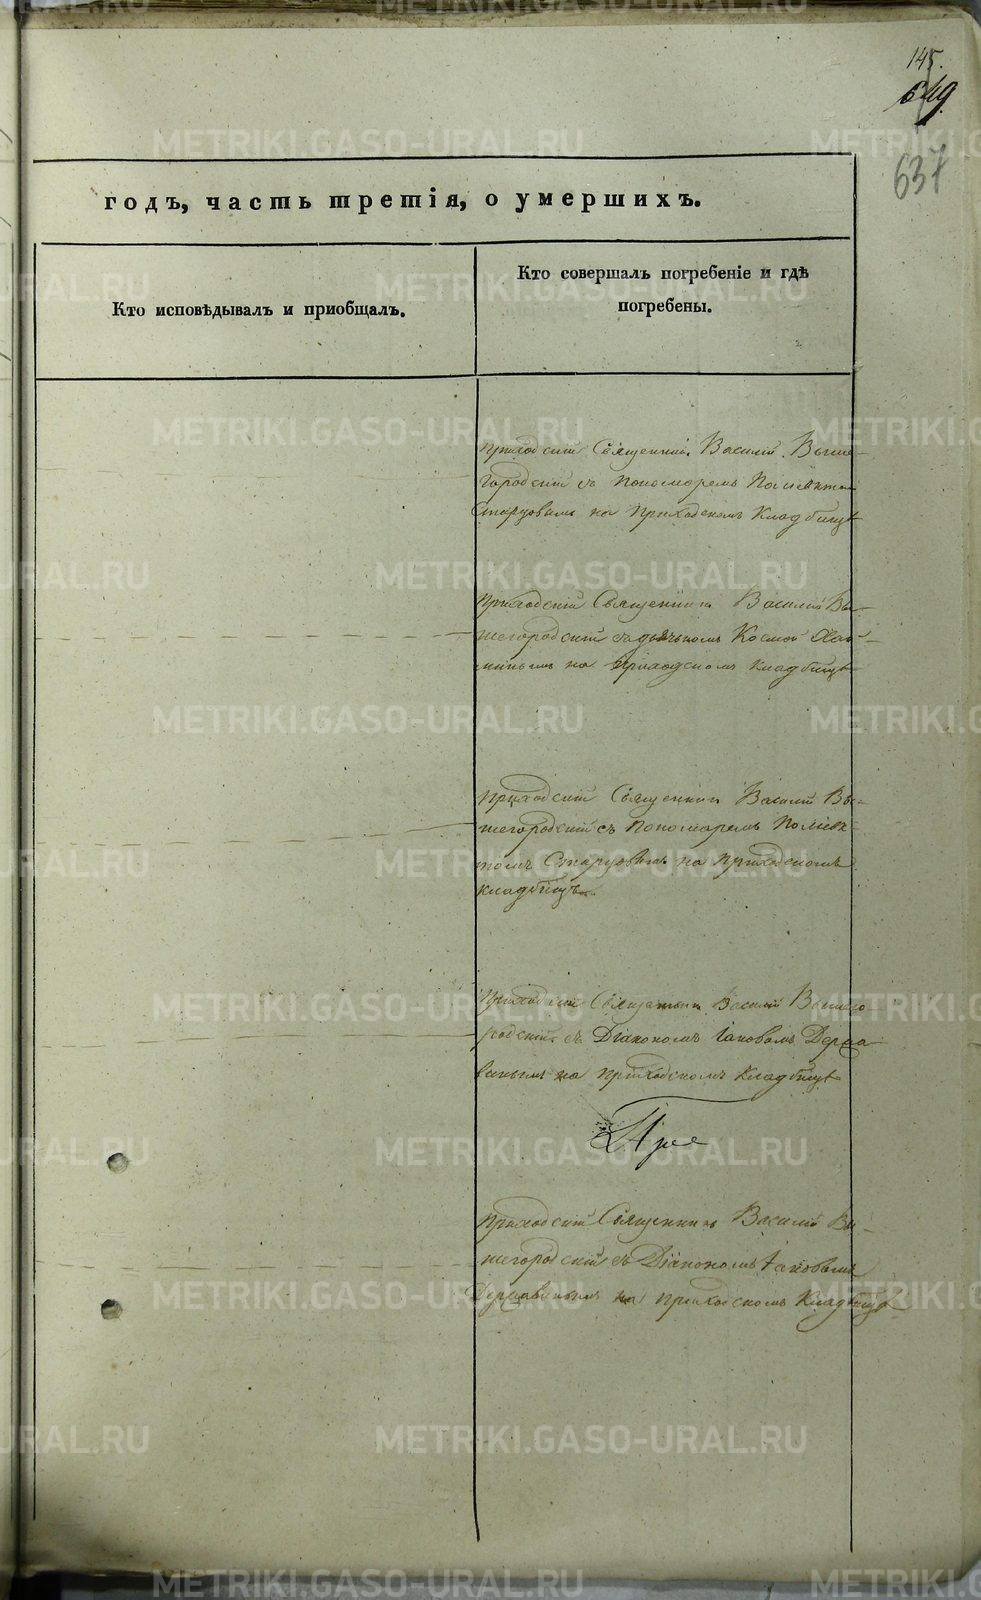 145.
649.
637
годъ, часть третія, о умершихъ.
Кто исповѣдывалъ и приобщалъ.
Кто совершалъ погребеніе и гдѣ
погребены.
Приходскій Священникъ Василій Выше-
городскій съ Пономаремъ
на Приходскомъ Кладбищѣ
Приходскій Священникъ Василій Вы-
шегородскій съ дьячькомъ Космой
на Приходскомъ Кладбищѣ
Приходскій Священникъ Василій Вы-
шегородскій съ Пономаремъ
на Приходскомъ
кладбищѣ.
Приходскій Священникъ Василій Вышего
родскій съ Діакономъ Іаковомъ Держа
винымъ на Приходскомъ Кладбищѣ
Приходскій Священникъ Василій Вы-
шегородскій съ Діакономъ Іаковомъ
Державинымъ на Приходскомъ Кладбищѣ
METRIKI.GASO-URAL.RU